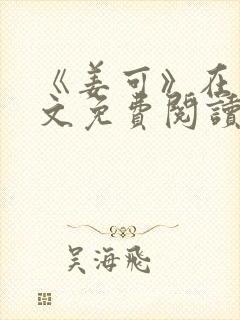 《姜可》在
文免費閱讀
吴海飛